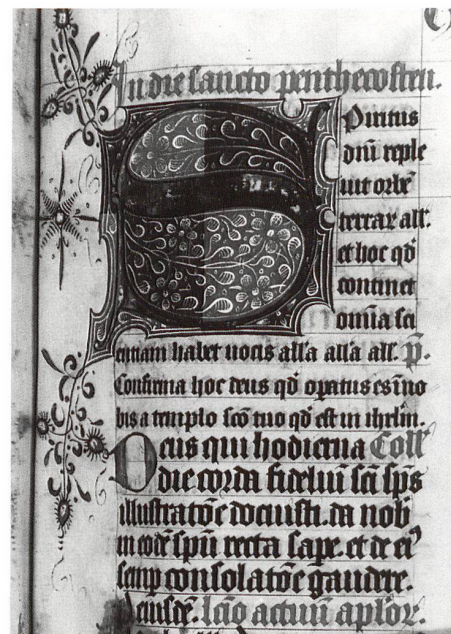 In die sancto penthecosten.
Spiritus
dn̄i reple
uit orbē
terrar̄ all'.
et hoc qd̄
continet
om̄ia sci
entiam habet uocis all'a all'a all'. p̄.
Confirma hoc deus qd̄ opatus es ī no
bis a templo scō tuo qd̄ est in ihrl̄m.
Deus qui hodierna Coll'
die corda fideliū scī sp̄s
illustratōe docuisti. da nob̄
in eodē sp̄u recta sape. et de ei9
semp consolatōe gaudere.
P eiusdē. lcīo actuū aplor̄.